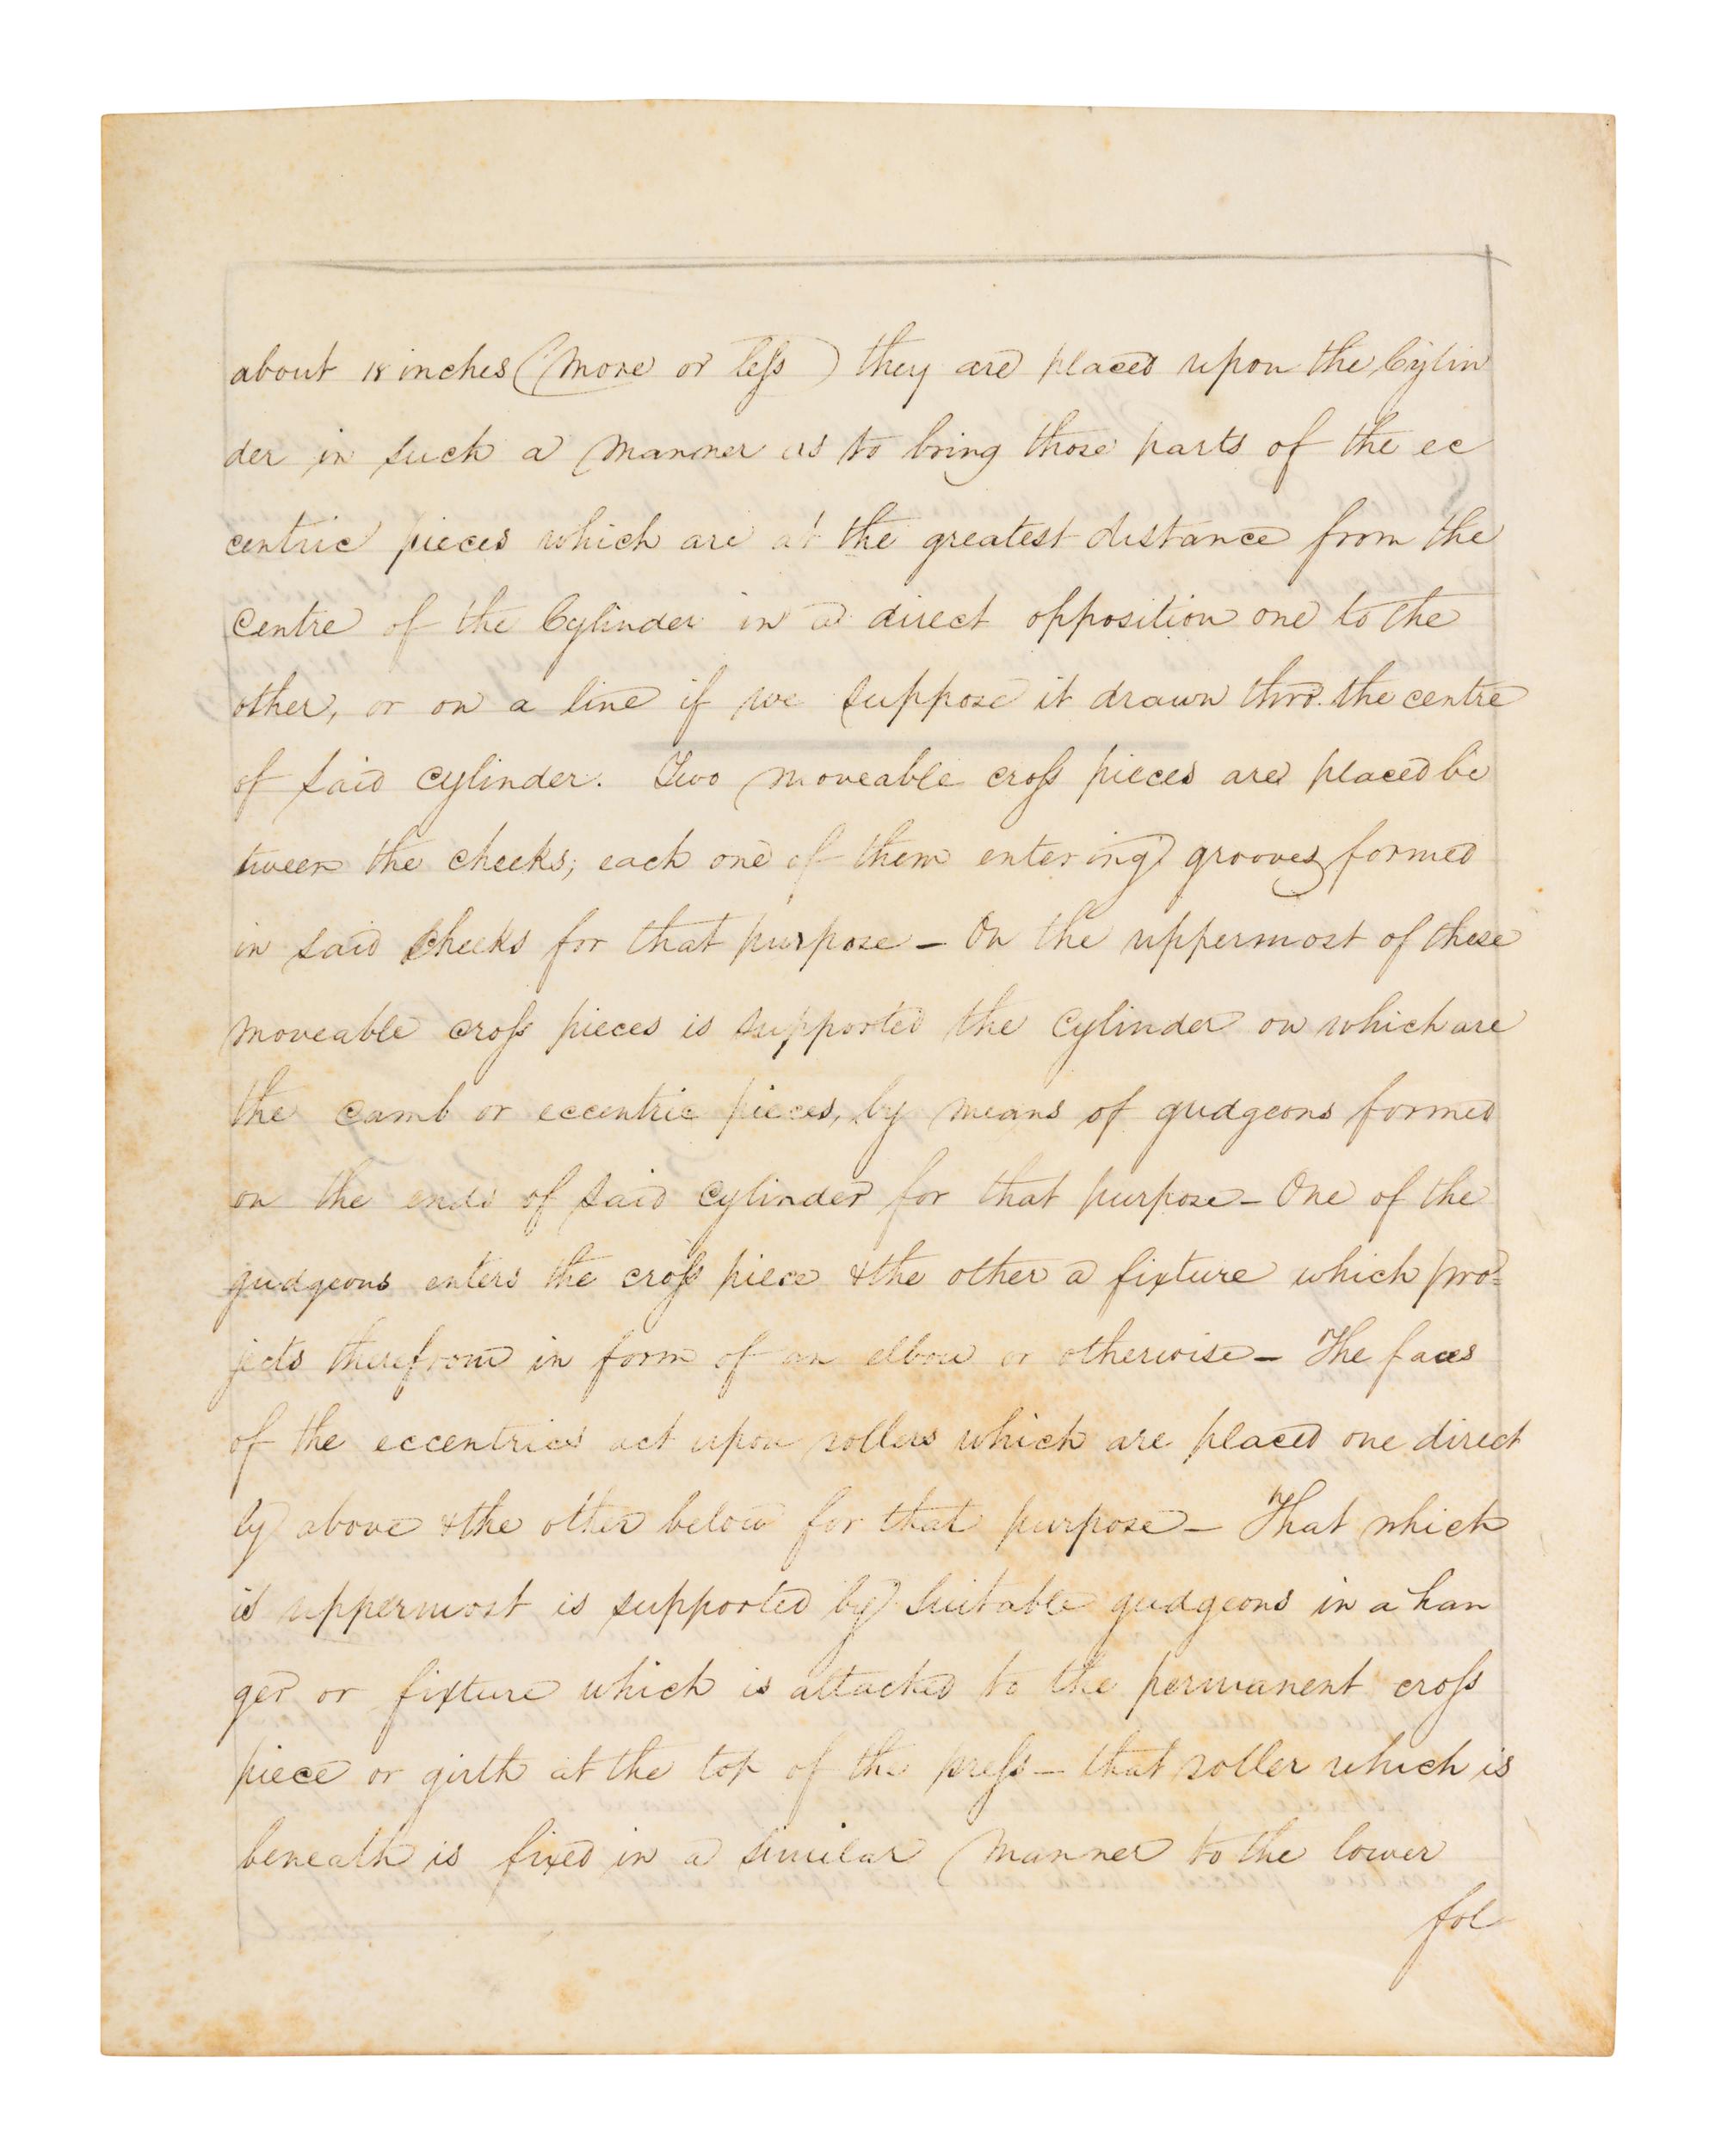 about 18 inches (more or less) they are placed upon the Cylin
der in such a manner as to bring those parts of the ec
centric pieces which are at the greatest distance from the
Centre of the Cylinder in a direct opposition one to the
other, or on a line if we suppose it drawn thro. the centre
of said cylinder. Two moveable cross pieces are placed be
tween the cheeks; each one of them entering grooves formed
in said cheeks for that purpose – On the uppermost of these
moveable cross pieces is supported the Cylinder on which are
the camb or eccentric pieces, by means of gudgeons formed
on the ends of said Cylinder for that purpose – One of the
gudgeons enters the cross piece & the other a fixture which pro=
jects therefrom in form of an elbow or otherwise – The faces
of the eccentrics act upon rollers which are placed one direct
ly above & the other below for that purpose – That which
is uppermost is supported by suitable gudgeons in a han
ger or fixture which is attached to the permanent cross
piece or girth at the top of the press – that roller which is
beneath is fixed in a similar manner to the lower
fol